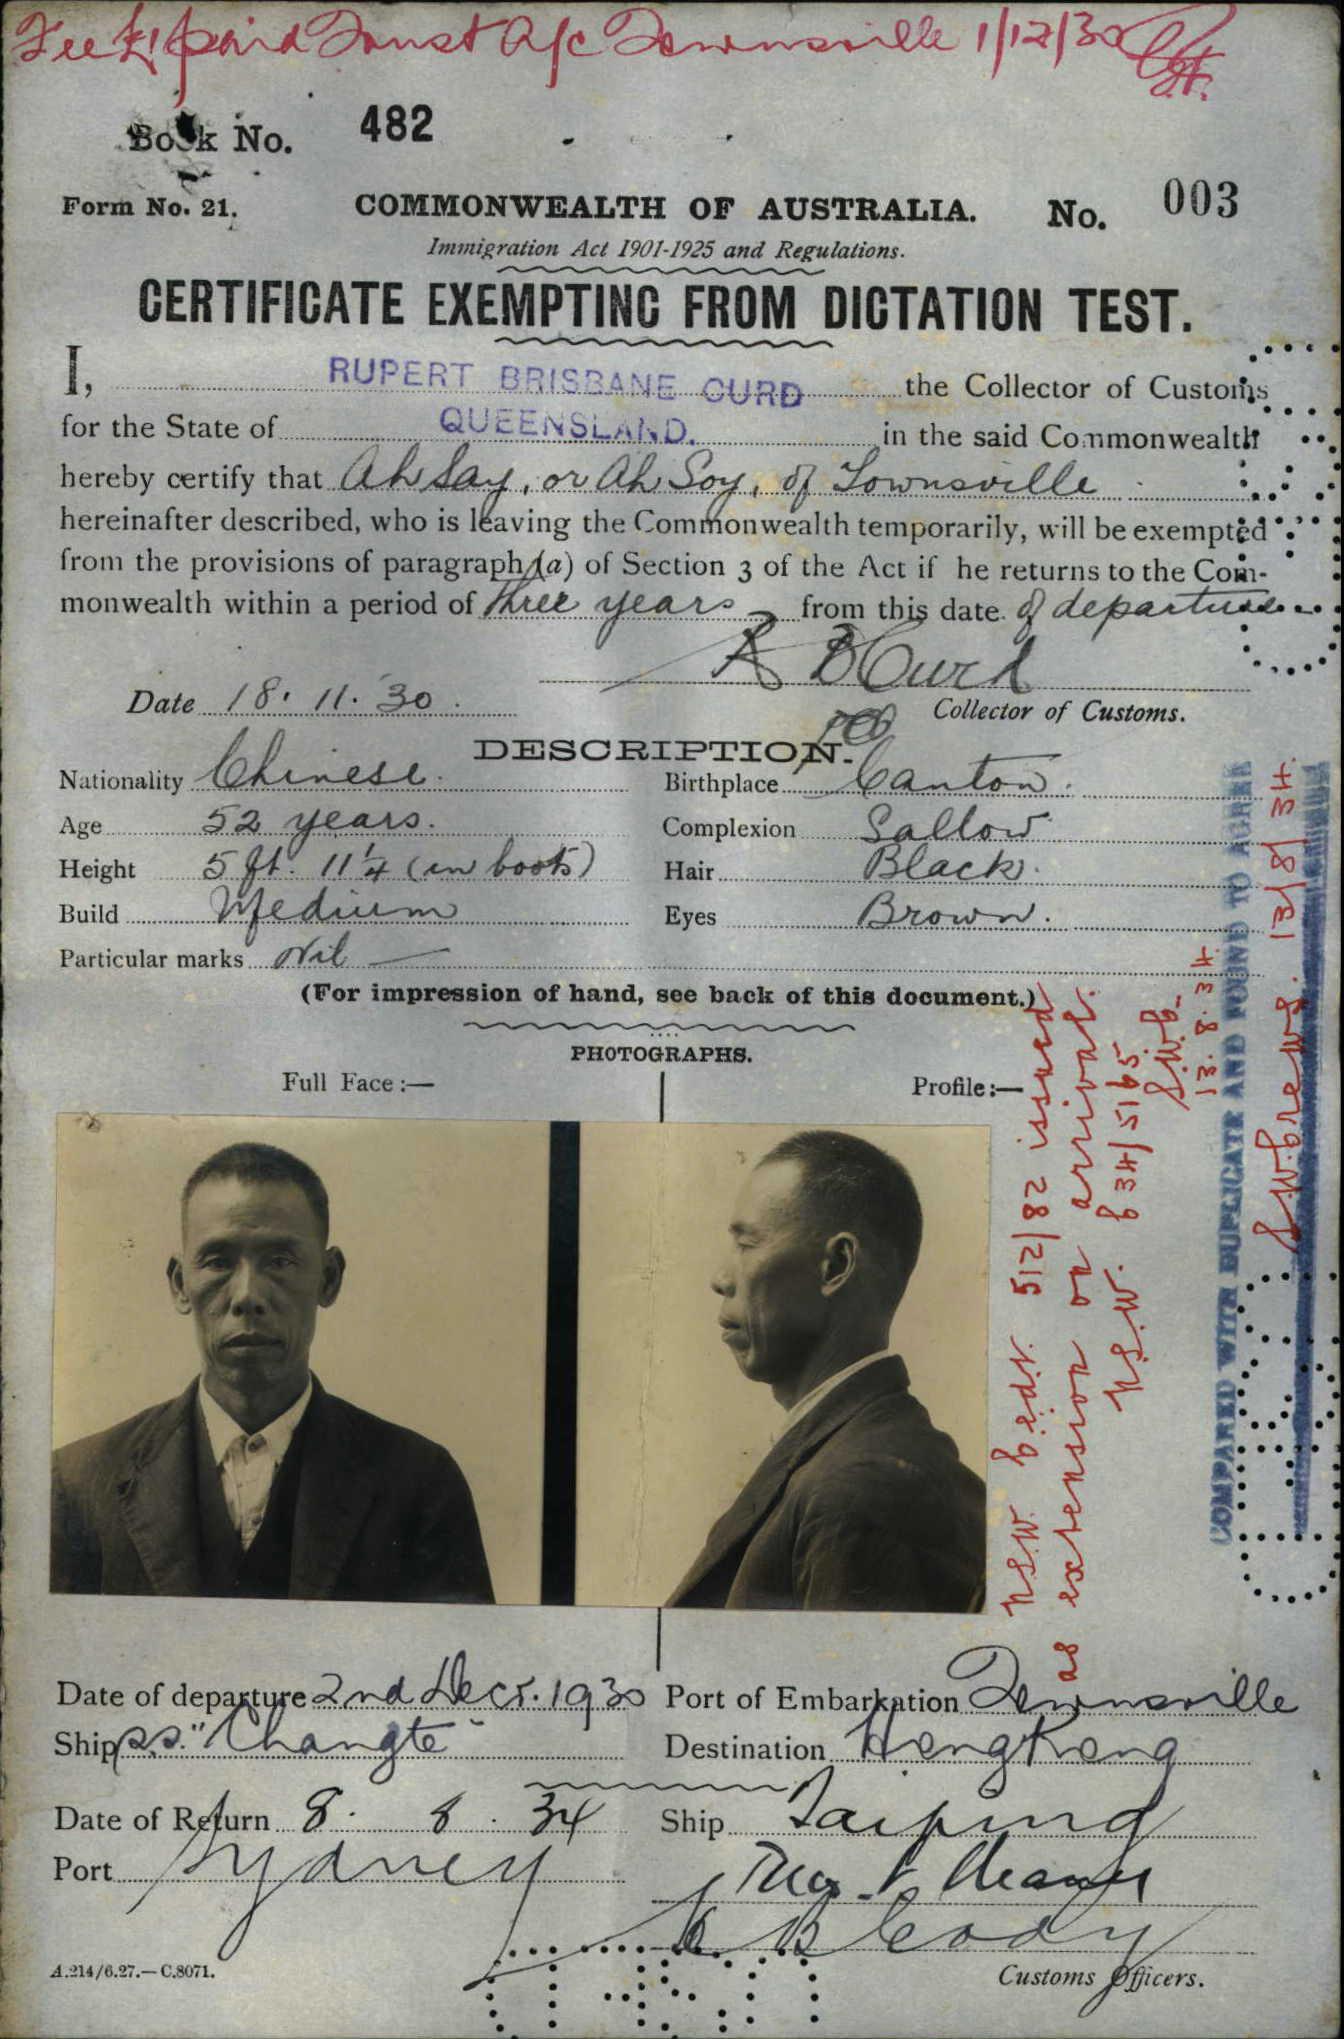 Fee £1 paid Trust A/c Townsville 1/12/30
Book No. 482
Form No. 21. COMMONWEALTH OF AUSTRALIA. No. 003
Immigration Act 1901-1925 and Regulations.
CERTIFICATE EXEMPTING FROM DICTATION TEST.
I, RUPERT BRISBANE CURD the Collector of Customs
for the State of QUEENSLAND. in the said Commonwealth
hereby certify that Ah Say, or Ah Soy, of Townsville
hereinafter described, who is leaving the Commonwealth temporarily, will be exempted
from the provisions of paragraph (a) of Section 3 of the Act if he returns to the Com-
monwealth within a period of three years from this date of departure
R B Curd
Date 18. 11. 30. Collector of Customs.
DESCRIPTION.
Nationality Chinese. Birthplace Canton.
Age 52 years. Complexion Sallow
Height 5 ft. 11 1/4 (in boots) Hair Black.
Build Medium Eyes Brown.
Particular marks Nil
(For impression of hand, see back of this document.)
PHOTOGRAPHS.
Full Face:— Profile:—
NSW Cedt. 512/82 issued
as extension on arrival.
N.S.W. C34/5165
S.W.B.
13.8.34.
COMPARED WITH DUPLICATE AND FOUND TO AGREE
S.W. Brews. 13/8/34.
Date of departure 2nd Decr. 1930 Port of Embarkation Townsville
Ship s.s. "Changte" Destination HongKong
Date of Return 8. 8. 34 Ship Taiping
Port Sydney
Customs Officers.
A.214/6.27.—C.8071.